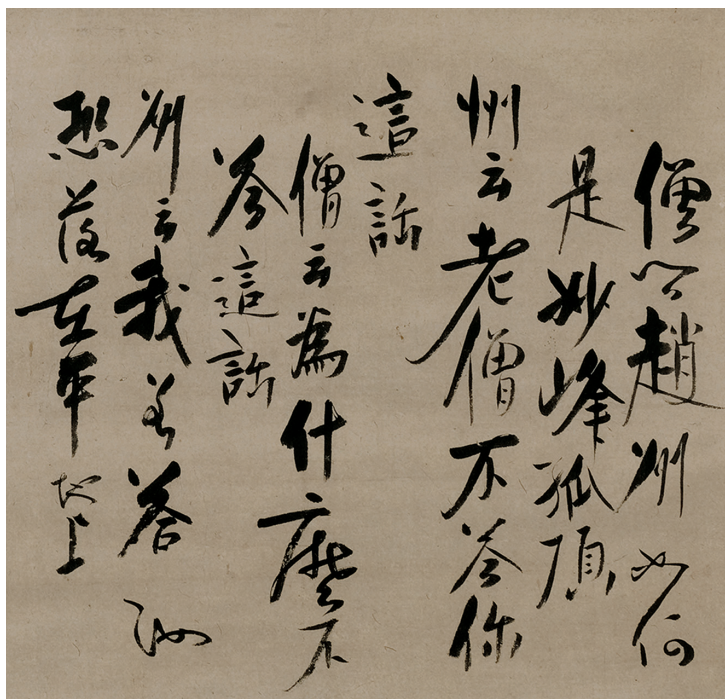 僧問趙州如何
是妙峰孤頂
州云老僧不荅你
這話
僧云為什麼不
荅這話
州云我若荅汝
恐落在平地上